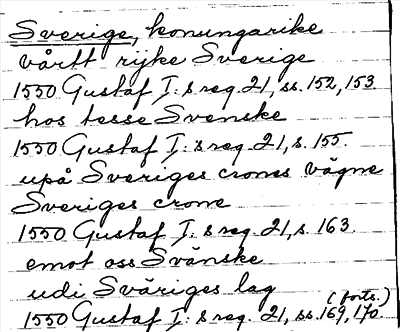 Sverige, konungarike
vårtt rijke Sverige
1550 Gustaf I:s reg. 21, ss. 152, 153.
hos tesse Svenske
1550 Gustaf I:s reg. 21, s. 155.
upå Sveriges crones vägne
Sveriges crone
1550 Gustaf I:s reg. 21, s. 163.
emot oss Svänske
udi Sväriges lag
(forts.)
1550 Gustaf I:s reg. 21, ss. 169, 170.